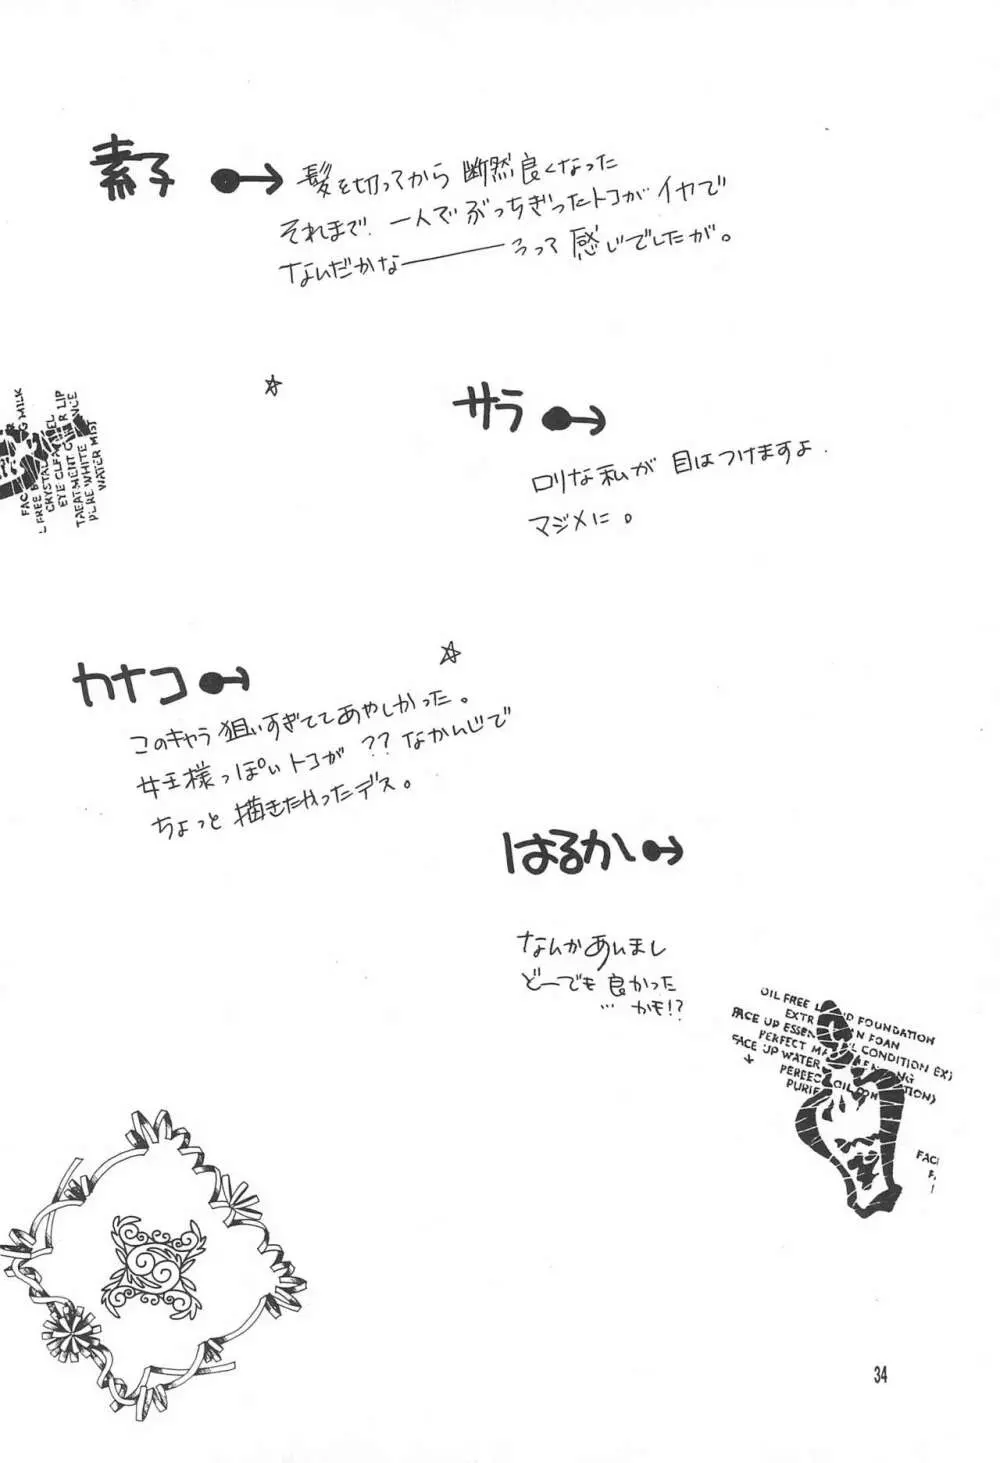 素子
髪を切ってから 断然良くなった
それまで、一人でぶっちぎったトコがイヤで
なんだかな――――ぅって 感じでしたが。
サラ
ロリな私が 目はつけますよ.
マジメに。
カナコ
このキャラ狙いすぎててあやしかった。
女王様っぽいトコが ??なかんじで
ちょっと描きたかったデス。
はるか
なんかあいまし
どーでも良かった
… かも!?
FAC
G MILK
L FREE
CRYSTAL
EYE CLEA
R LIP
TREATMENT
PURE WHITE
WATER MIST
OIL FREE L
D FOUNDATION
EXTR
N FOAN
FACE UP ESSEN
L CONDITION EX
PERFECT MA
NG
FACE UP WATER
TION)
PERFEC
OIL CON
PURIF
FACE
34